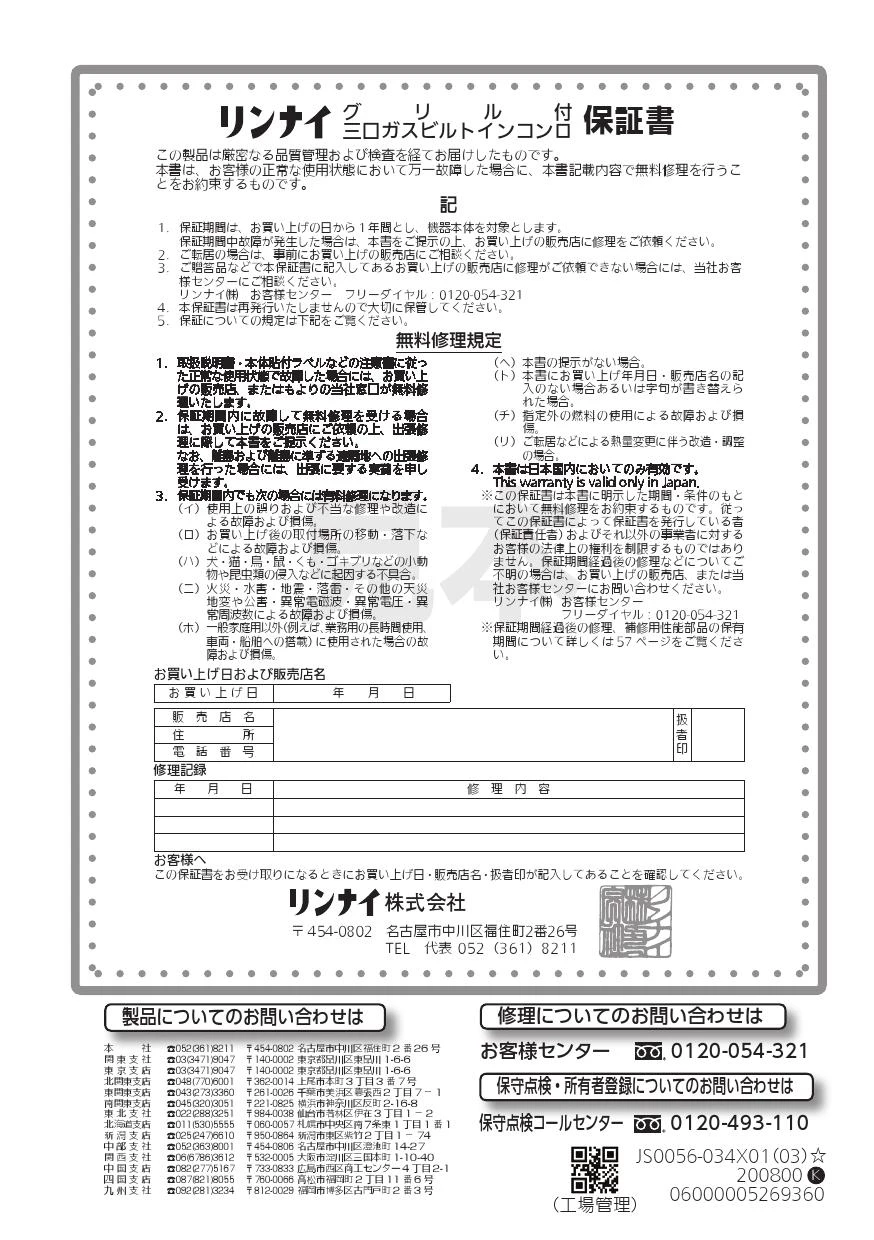 リンナイ グリル付 三口ガスビルトインコンロ 保証書
この製品は厳密なる品質管理および検査を経てお届けしたものです。
本書は、お客様の正常な使用状態において万一故障した場合に、本書記載内容で無料修理を行うこ
とをお約束するものです。
記
1. 保証期間は、お買い上げの日から1年間とし、機器本体を対象とします。
保証期間中故障が発生した場合は、本書をご提示の上、お買い上げの販売店に修理をご依頼ください。
2. ご転居の場合は、事前にお買い上げの販売店にご相談ください。
3. ご贈答品などで本保証書に記入してあるお買い上げの販売店に修理がご依頼できない場合には、当社お客
様センターにご相談ください。
リンナイ㈱ お客様センター フリーダイヤル：0120-054-321
4. 本保証書は再発行いたしませんので大切に保管してください。
5. 保証についての規定は下記をご覧ください。
無料修理規定
1. 取扱説明書・本体貼付ラベルなどの注意書に従っ
た正常な使用状態で故障した場合には、お買い上
げの販売店、またはもよりの当社窓口が無料修
理いたします。
2. 保証期間内に故障して無料修理を受ける場合
は、お買い上げの販売店にご依頼の上、出張修
理に際して本書をご提示ください。
なお、離島および離島に準ずる遠隔地への出張修
理を行った場合には、出張に要する実費を申し
受けます。
3. 保証期間内でも次の場合には有料修理になります。
（イ）使用上の誤りおよび不当な修理や改造に
よる故障および損傷。
（ロ）お買い上げ後の取付場所の移動・落下な
どによる故障および損傷。
（ハ）犬・猫・鳥・鼠・くも・ゴキブリなどの小動
物や昆虫類の侵入などに起因する不具合。
（ニ）火災・水害・地震・落雷・その他の天災
地変や公害・異常電磁波・異常電圧・異
常周波数による故障および損傷。
（ホ）一般家庭用以外（例えば、業務用の長時間使用、
車両・船舶への搭載）に使用された場合の故
障および損傷。
（ヘ）本書の提示がない場合。
（ト）本書にお買い上げ年月日・販売店名の記
入のない場合あるいは字句が書き替えら
れた場合。
（チ）指定外の燃料の使用による故障および損
傷。
（リ）ご転居などによる熱量変更に伴う改造・調整
の場合。
4. 本書は日本国内においてのみ有効です。
This warranty is valid only in Japan.
※この保証書は本書に明示した期間・条件のもと
において無料修理をお約束するものです。従っ
てこの保証書によって保証書を発行している者
（保証責任者）およびそれ以外の事業者に対する
お客様の法律上の権利を制限するものではあり
ません。保証期間経過後の修理などについてご
不明の場合は、お買い上げの販売店、または当
社お客様センターにお問い合わせください。
リンナイ㈱ お客様センター
フリーダイヤル：0120-054-321
※保証期間経過後の修理、補修用性能部品の保有
期間について詳しくは57ページをご覧くださ
い。
見本
お買い上げ日および販売店名
お買い上げ日 年 月 日
販売店名 扱者印
住所
電話番号
修理記録
年 月 日 修理内容
お客様へ
この保証書をお受け取りになるときにお買い上げ日・販売店名・扱者印が記入してあることを確認してください。
リンナイ株式会社
〒454-0802 名古屋市中川区福住町2番26号
TEL 代表 052（361）8211
製品についてのお問い合わせは
本社 ☎052(361)8211 〒454-0802 名古屋市中川区福住町2番26号
関東支社 ☎03(3471)9047 〒140-0002 東京都品川区東品川1-6-6
東京支店 ☎03(3471)9047 〒140-0002 東京都品川区東品川1-6-6
北関東支店 ☎048(770)6001 〒362-0014 上尾市本町3丁目3番7号
東関東支店 ☎043(273)3360 〒261-0026 千葉市美浜区幕張西2丁目7－1
南関東支店 ☎045(320)3051 〒221-0825 横浜市神奈川区反町2-16-8
東北支社 ☎022(288)3251 〒984-0038 仙台市若林区伊在3丁目1－2
北海道支店 ☎011(530)5555 〒060-0057 札幌市中央区南7条東1丁目1番1
新潟支店 ☎025(247)6610 〒950-0864 新潟市東区紫竹2丁目1－74
中部支社 ☎052(363)8001 〒454-0806 名古屋市中川区澄池町14-27
関西支社 ☎06(6786)3612 〒532-0005 大阪市淀川区三国本町1-10-40
中国支店 ☎082(277)5167 〒733-0833 広島市西区商工センター4丁目2-1
四国支店 ☎087(821)8055 〒760-0066 高松市福岡町2丁目11番6号
九州支社 ☎092(281)3234 〒812-0029 福岡市博多区古門戸町2番3号
修理についてのお問い合わせは
お客様センター 0120-054-321
保守点検・所有者登録についてのお問い合わせは
保守点検コールセンター 0120-493-110
（工場管理）
JS0056-034X01(03)☆
200800 K
06000005269360